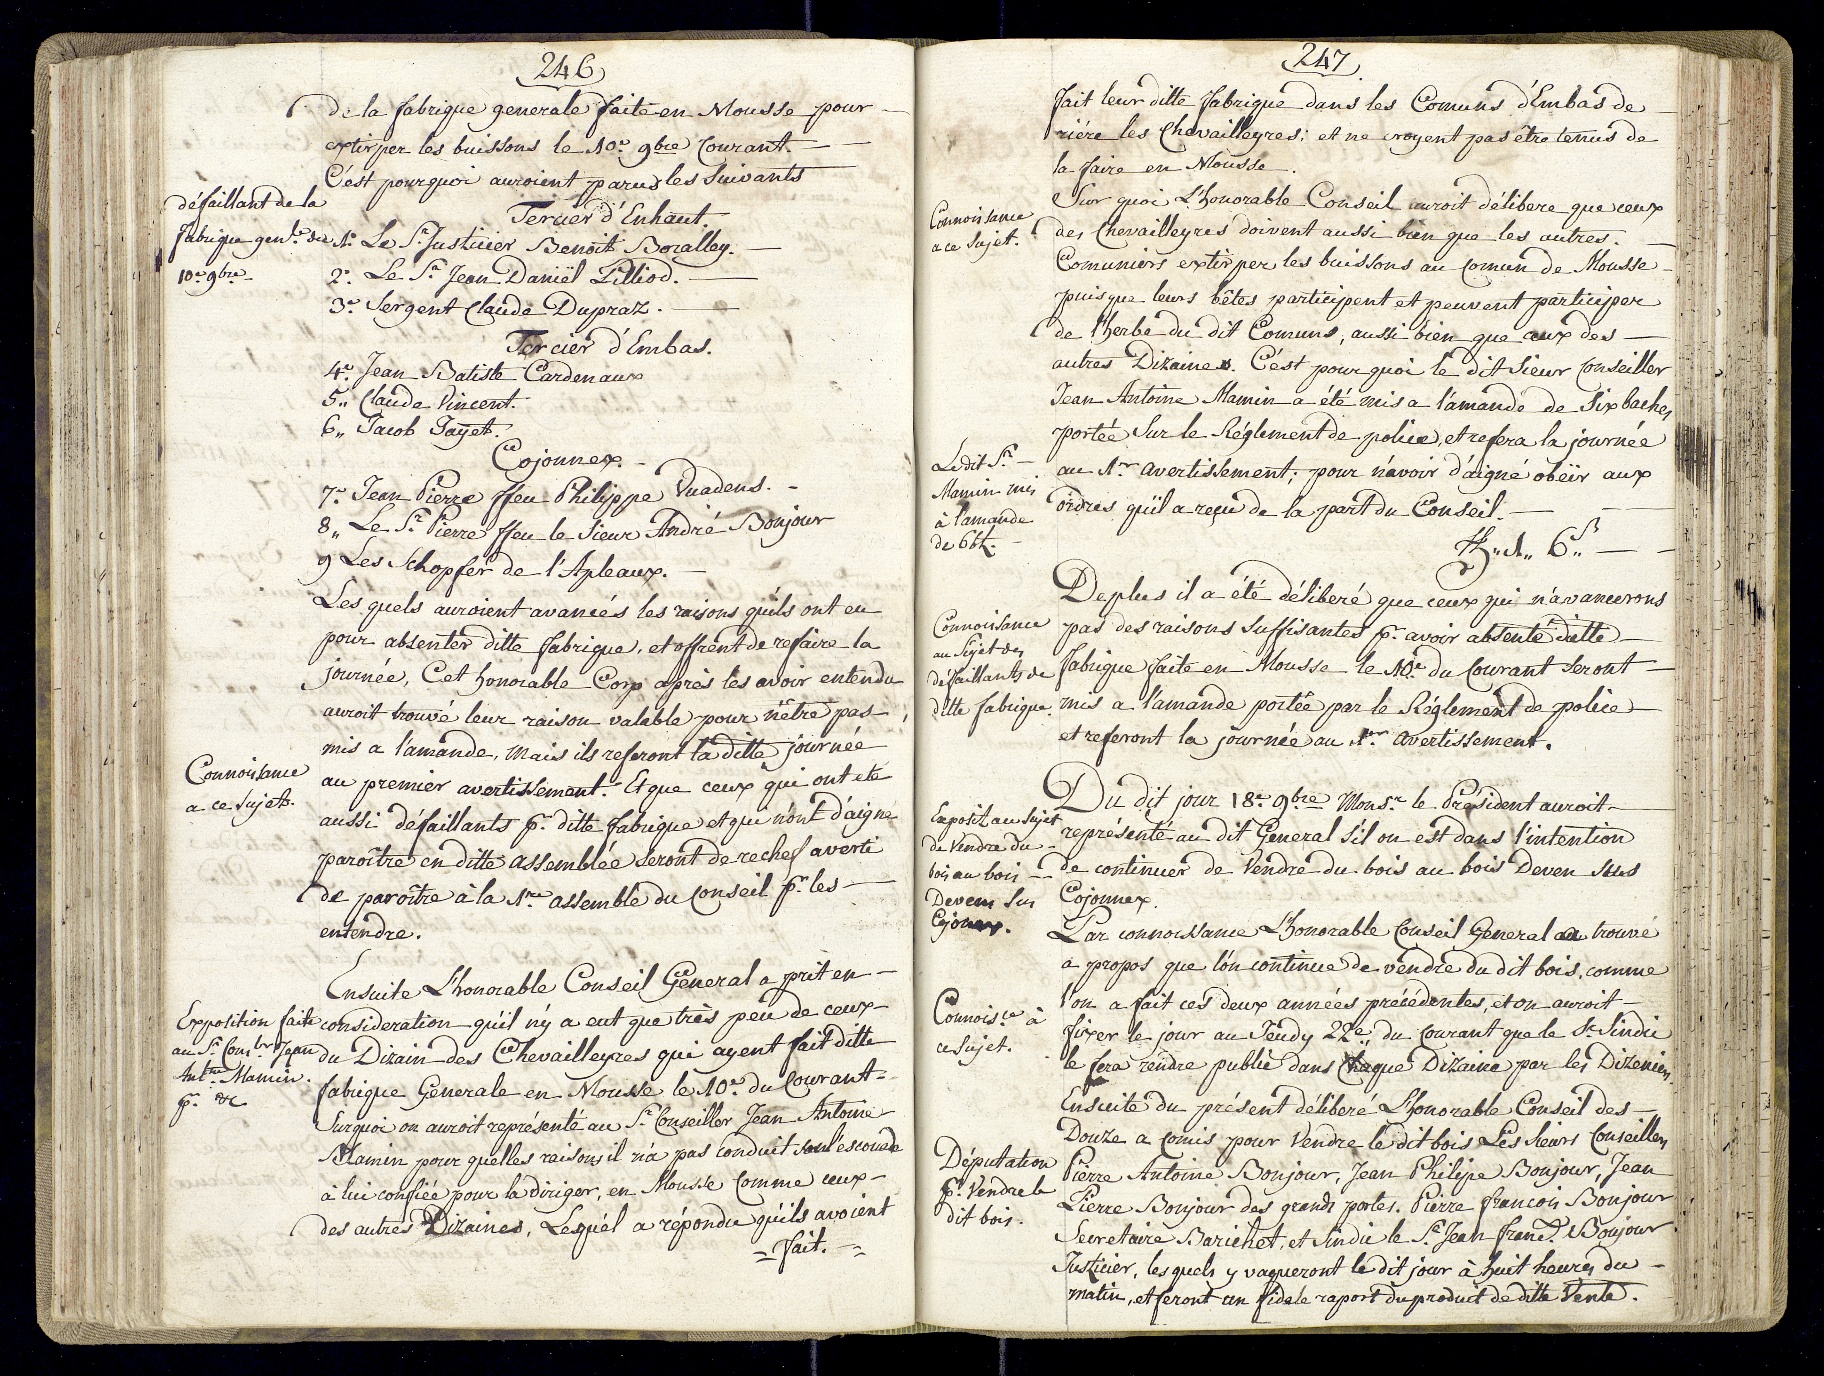 246
de la fabrique generale faite en Mousse pour
extirper les buissons le 10e. 9bre Courant.
C'est pourquoi auroient parus les Suivants
défaillant de la
fabrique genle. du
10e 9bre
Tercier d'Enhaut.
1o. Le Sr. Justicier Benoit Boralley.
2o. Le Sr. Jean Daniël Pilliod.
3o. Sergent Claude Dupraz.
Tercier d'Embas.
4o. Jean Batiste Cardenaux
5,, Claude Vincent.
6,, Jacob Taÿet.
Cojonnex.
7o. Jean Pierre ffeu Philippe Vuadens.
8,, Le Sr. Pierre ffeu le Sieur André Bonjour
9 Les Schopfer de l'Apleaux.
Les quels auroient avancés les raisons qu'ils ont eu
pour absenter ditte fabrique, et offrent de refaire la
journée, Cet honorable Corp après les avoir entendu
auroit trouvé leur raison valable pour n'être pas
mis a l'amande, Mais ils referont la ditte journée
Connoissance
a ce Sujet.
au premier avertissement. Et que ceux qui ont été
aussi défaillants pr. ditte fabrique et qui n'ont d'aigné
paroître en ditte assemblée seront de rechef averti
de paroître à la 1re assemblé du Conseil pr. les
entendre.
Ensuite L'honorable Conseil Géneral a prit en
Exposition faite
au Sr. Conslr Jean
Antne. Mamin.
pr. &c
consideration qu'il n'y a eut que très peu de ceux
du Dizain des Chevailleyres qui ayent fait ditte
fabrique Generale en Mousse le 10e. du Courant
Surquoi on auroit représenté au Sr. Conseiller Jean Antoine
Mamin pour quelles raisons il n'a pas conduit son l'escouade
à lui confiée pour la diriger, en Mousse Comme ceux
des autres Dizaines, Lesquel a répondu qu'ils avoient
= fait. =
247
fait leur ditte fabrique dans les Comuns d'Embas de
riére les Chevailleyres: et ne croyent pas être tenus de
la faire en Mousse.
Connoissance
a ce Sujet.
Sur quoi L'honorable Conseil auroit délibere que ceux
des Chevailleyres doivent aussi bien que les autres
Comuniers extirper les buissons au Comun de Mousse
puisque leurs bêtes participent et peuvent participer
de l'herbe du dit Comuns, aussi bien que ceux des
autres Dizaines. C'est pourquoi le dit Sieur Conseiller
Jean Antoine Mamin a été mis a l'amande de Six baches
portée Sur le Réglement de police, et refera la journée
Le dit Sr.
Mamin mis
à l'amande
de 6bt.
au 1er avertissement; pour n'avoir d'aigné obéïr aux
ordres qu'il a reçu de la part du Conseil.
1,, 6,,
De plus il a été déliberé que ceux qui n'avancerons
Connoissance
au Sujet des
défaillants de
ditte fabrique.
pas des raisons suffisantes pr. avoir absenté ditte
fabrique faite en Mousse le 10e. du Courant Seront
mis a l'amande portée par le Réglement de police
et referont la journée au 1er avertissement.
Du dit jour 18e. 9bre Monsr. le Président auroit
Exposit. au Sujet
de Vendre du
bois au bois
Devens Sus
Cojonnex.
représenté au dit General S'il on est dans l'intention
de continuer de Vendre du bois au bois Deven Sus
Cojonnex.
Par connoissance L'honorable Conseil General a trouvé
a propos que l'on continue de vendre du dit bois, comme
Connoisce. à
ce Sujet.
l'on a fait ces deux années précédentes, et on auroit
fixer le jour au Jeudy 22e,, du Courant que le Sr. Sindic
le fera rendre public dans Chaque Dizaine par les Dizeniers
Ensuite du présent déliberé L'honorable Conseil des
Douze a comis pour Vendre le dit bois Les Sieurs Conseillers
Députation
pr. Vendre le
dit bois.
Pierre Antoine Bonjour, Jean Philipe Bonjour, Jean
Pierre Bonjour des grands portes. Pierre françois Bonjour
Secretaire Barichet, et Sindic le Sr. Jean franc. Bonjour
Justicier, lesquels y vaqueront le dit jour à huit heures du
matin, et feront un fidele raport du produit de ditte Vente.